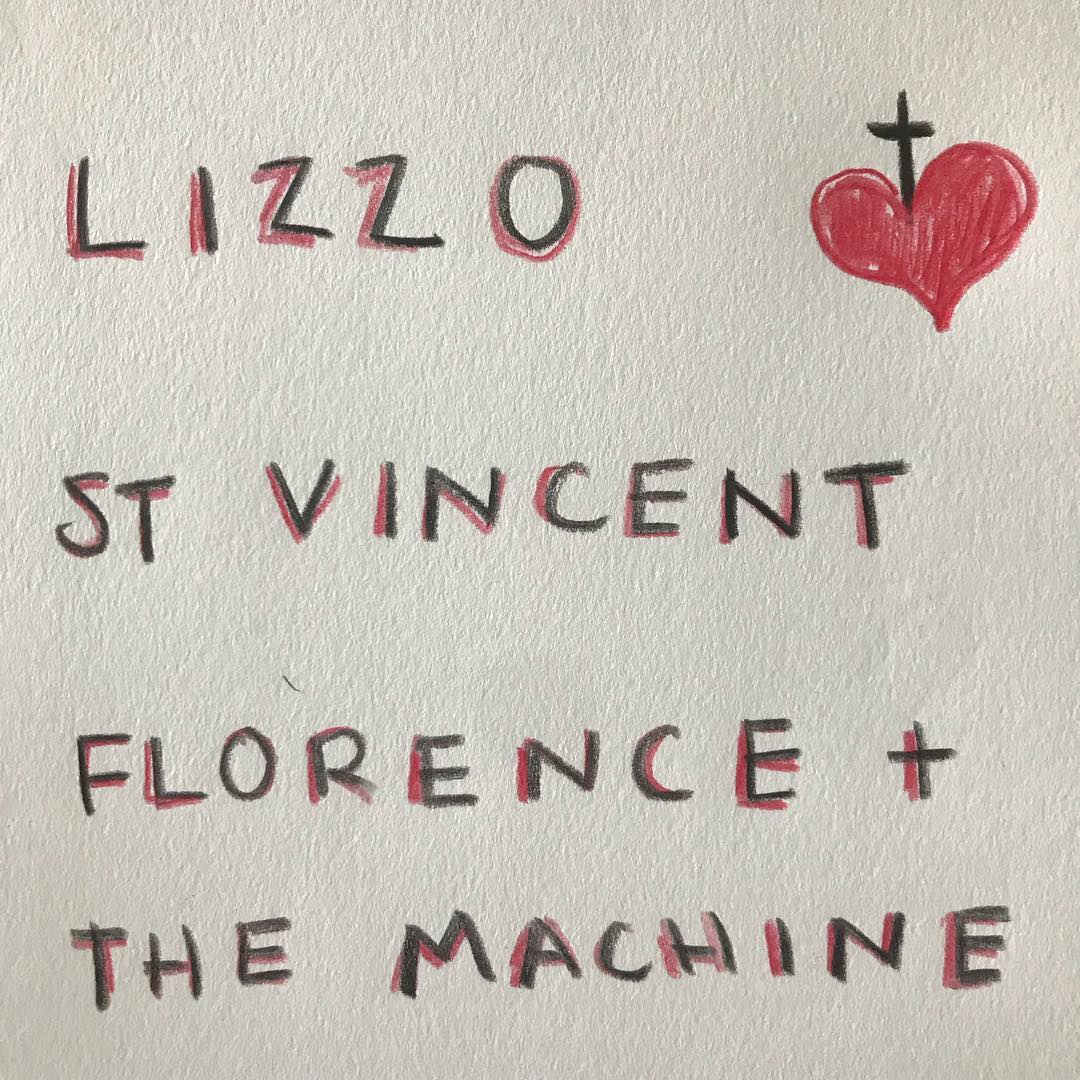 LIZZO
ST VINCENT
FLORENCE +
THE MACHINE